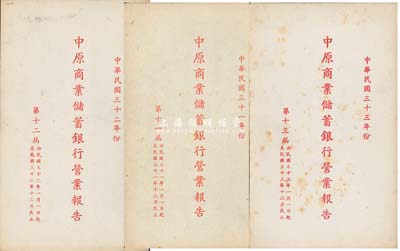 中華民國三十二年份
中原商業儲蓄銀行營業報告
第十二屆
自民國三十二年一月一日起
至民國三十二年十二月底止
中華民國三十一年份
中原商業儲蓄銀行營業報告
第十一屆
自民國三十一年一月一日起
至民國三十一年十二月底止
中華民國三十三年份
中原商業儲蓄銀行營業報告
第十三屆
自民國三十三年一月一日起
至民國三十三年十二月底止